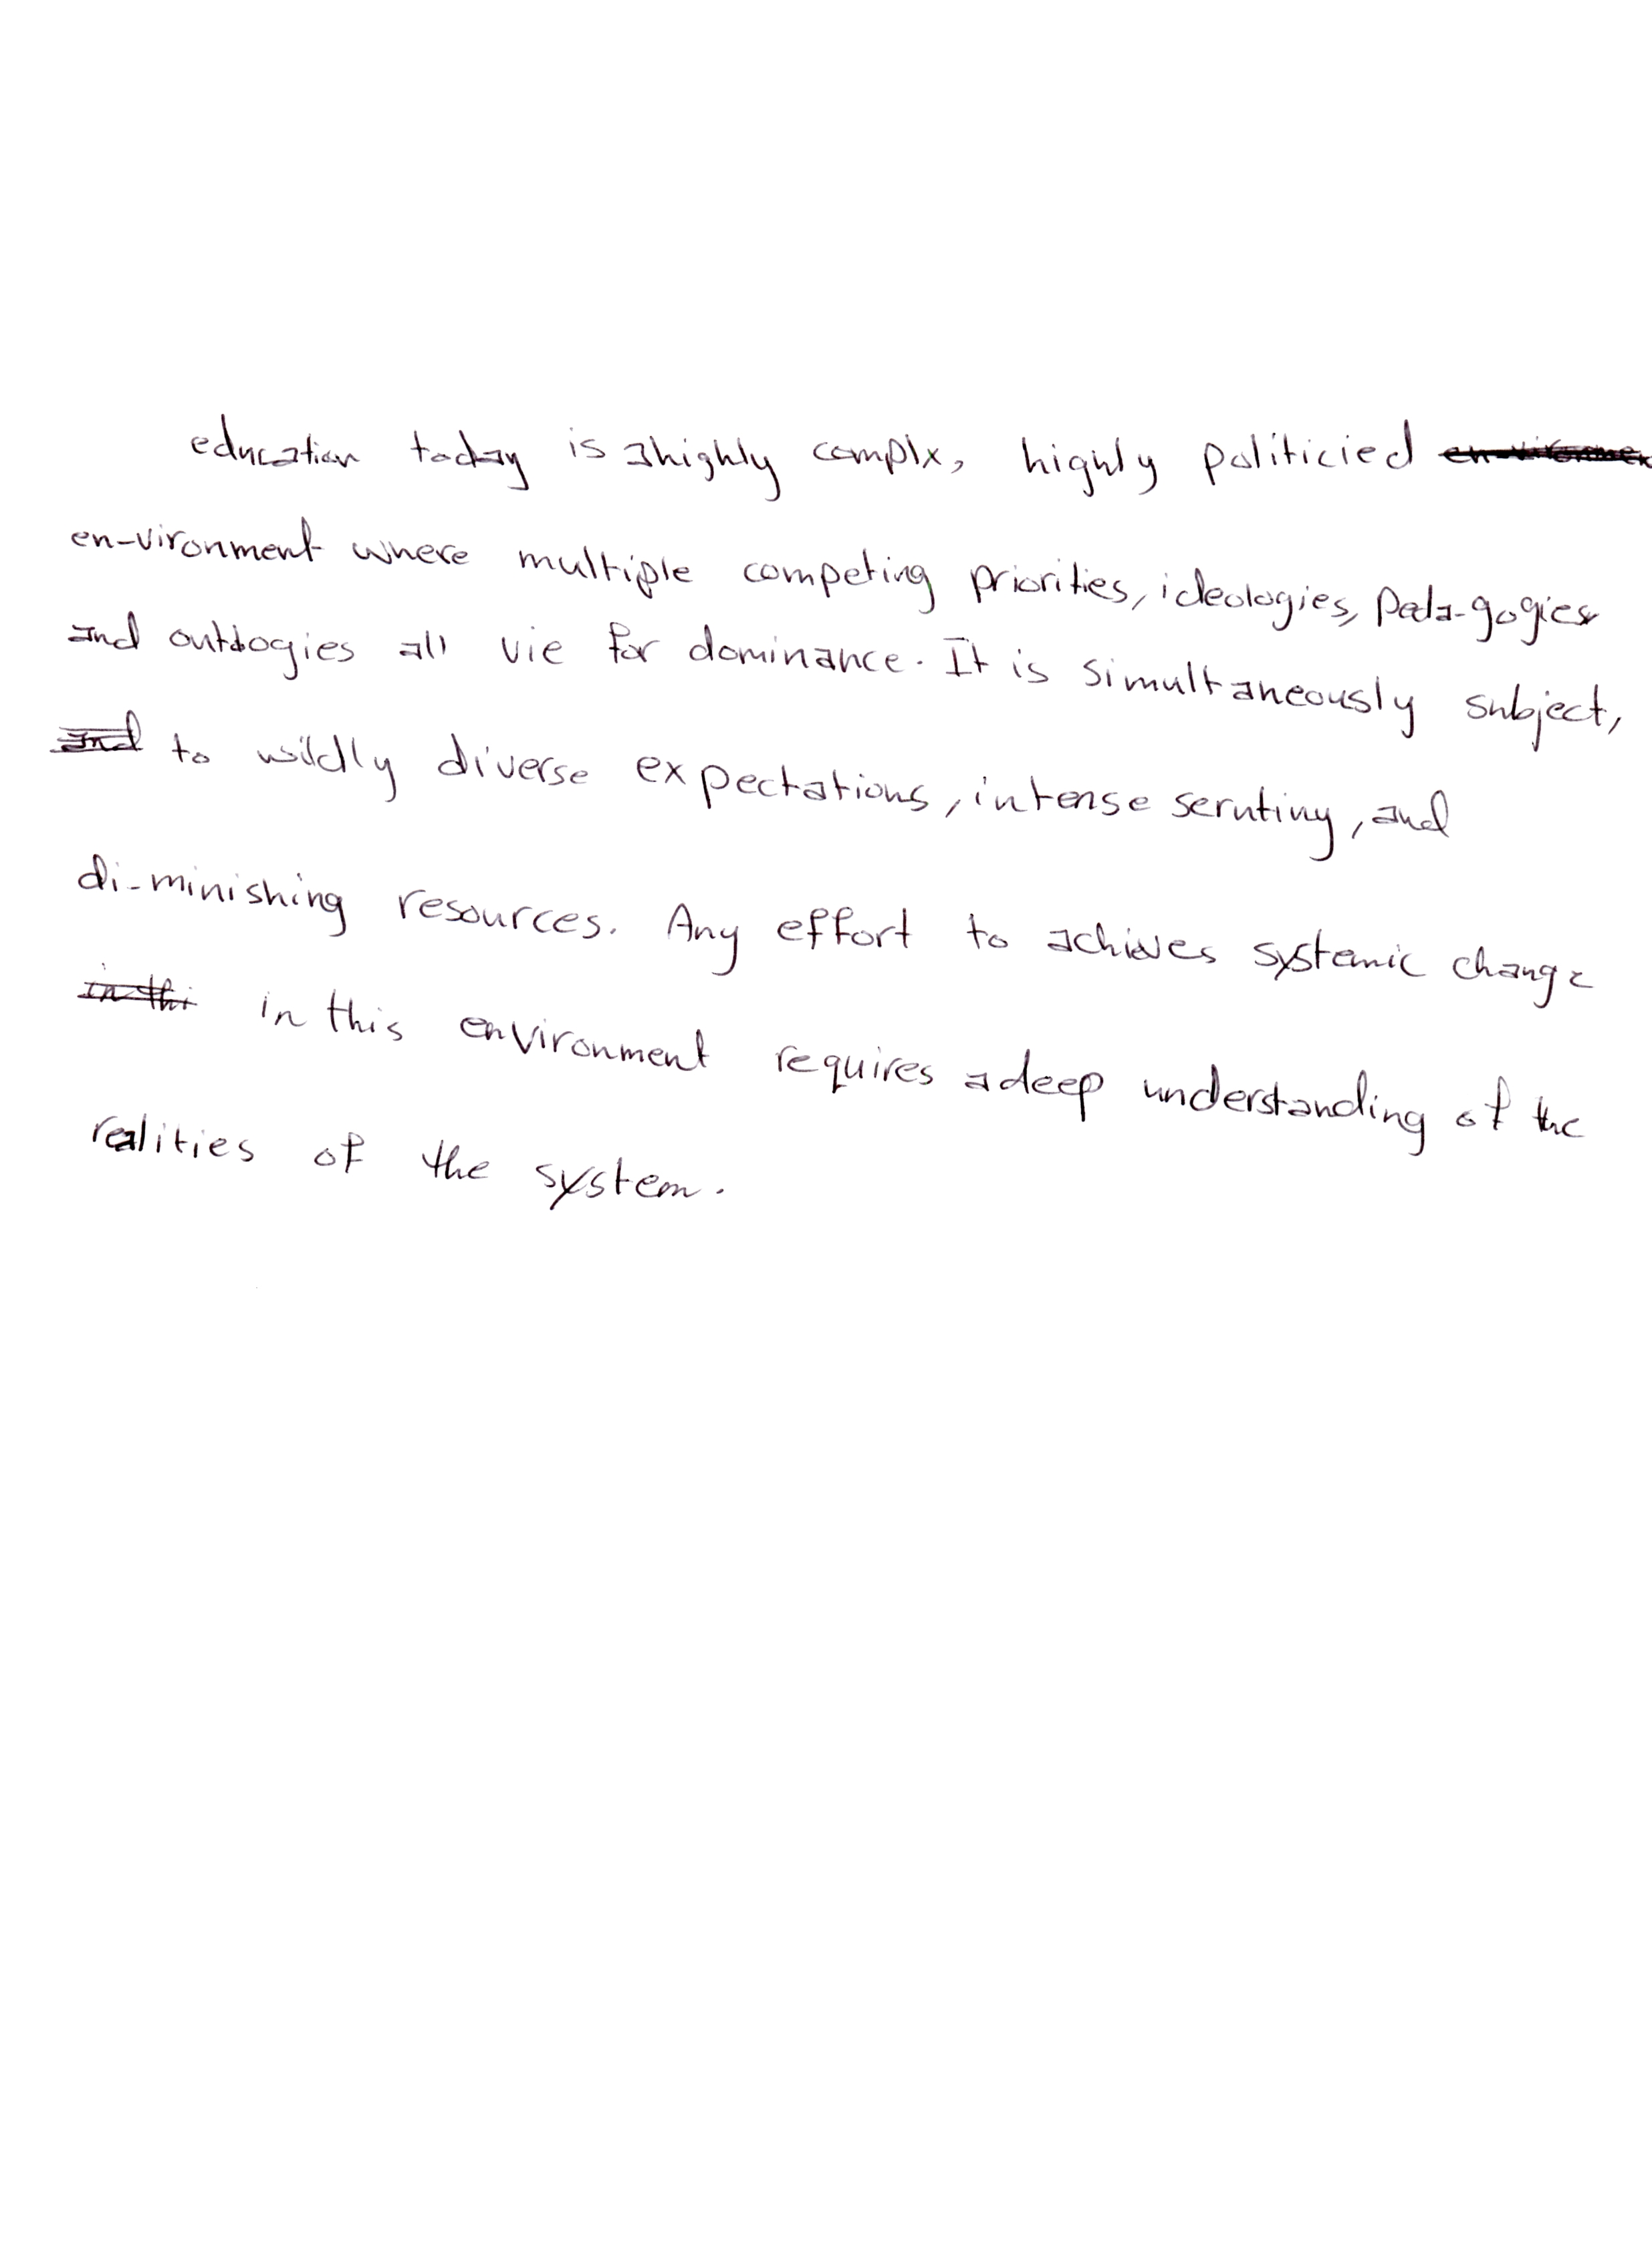 education today is a highly complx, highly politicied en-vironmen
en-vironment where multiple competing priorities, ideologies, Peda-gogies
and outologies all vie for dominance. It is simultaneously subject,
and to wildly diverse expectations, intense serutiny, and
di-minishing resources. Any effort to achieves systemic change
in thi in this environment requires a deep understanding of the
realities of the system.